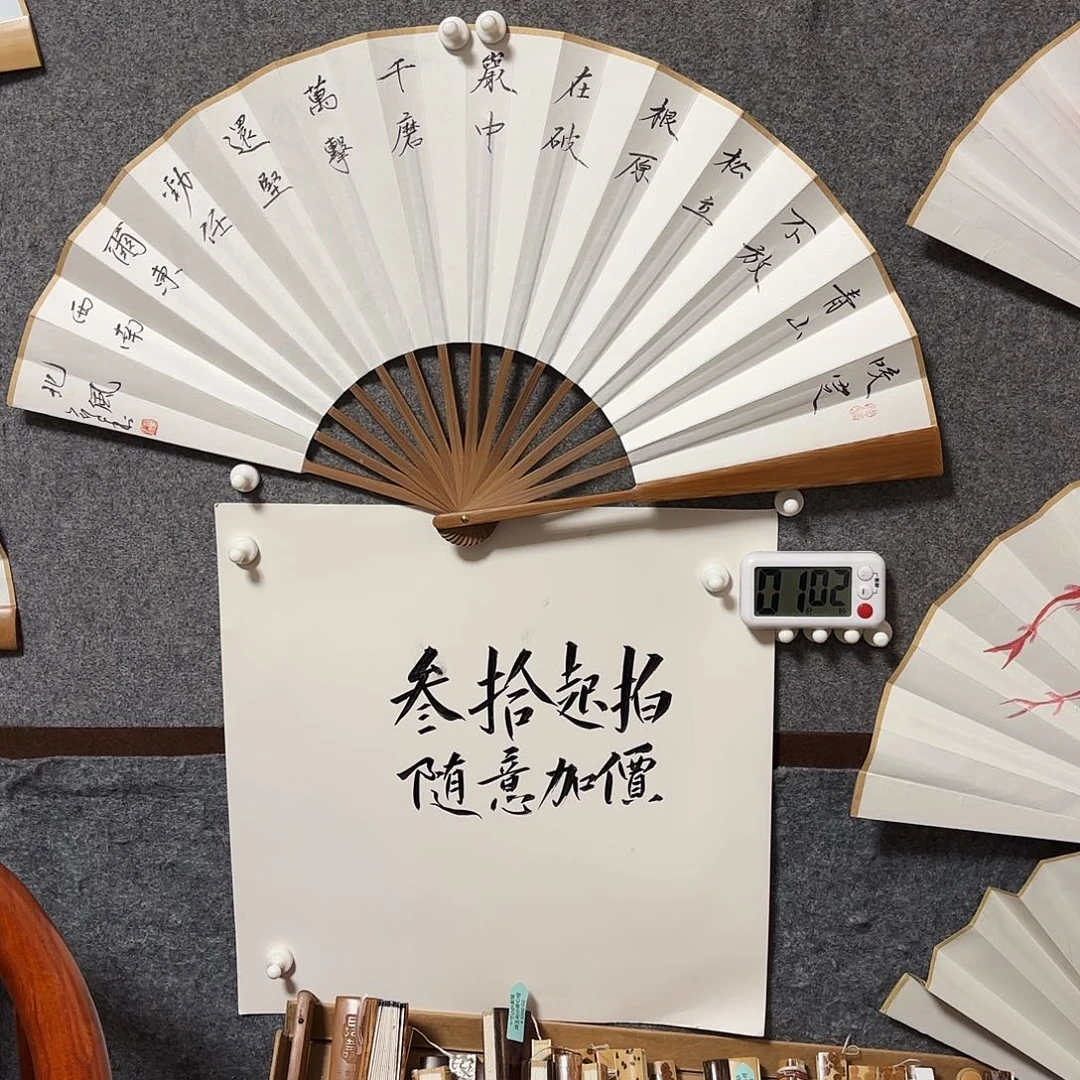 咬定
青山
不放
松立
根原
在破
巖中
千磨
萬擊
還堅
勁任
爾東
西南
北風
叁拾起拍
隨意加價
01 02